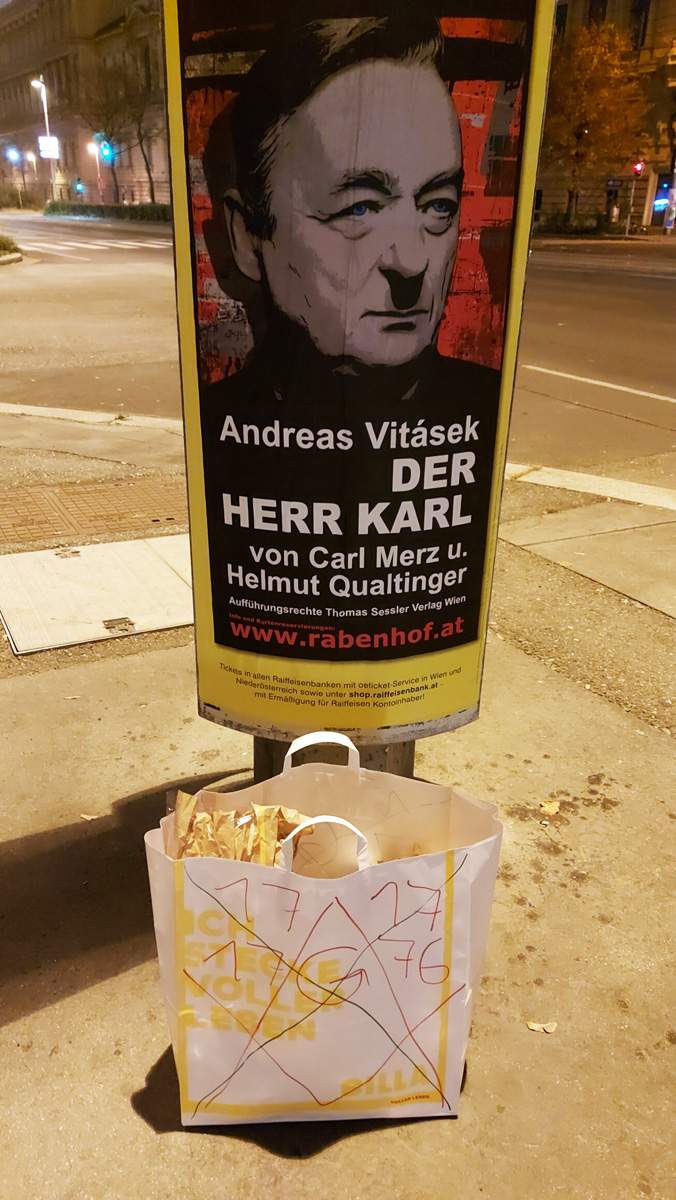 Andreas Vitásek
DER
HERR KARL
von Carl Merz u.
Helmut Qualtinger
Aufführungsrechte Thomas Sessler Verlag Wien
Info und Kartenreservierungen:
www.rabenhof.at
Tickets in allen Raiffeisenbanken mit oeticket-Service in Wien und
Niederösterreich sowie unter shop.raiffeisenbank.at –
mit Ermäßigung für Raiffeisen Kontoinhaber!
17 17
ICH
STECKE
17 G 76
VOLLER
LEBEN
BILLA
VOLLER LEBEN.